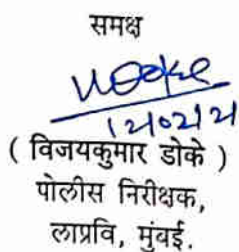 समक्ष
12/02/21
( विजयकुमार डोके )
पोलीस निरीक्षक,
लाप्रवि, मुंबई.